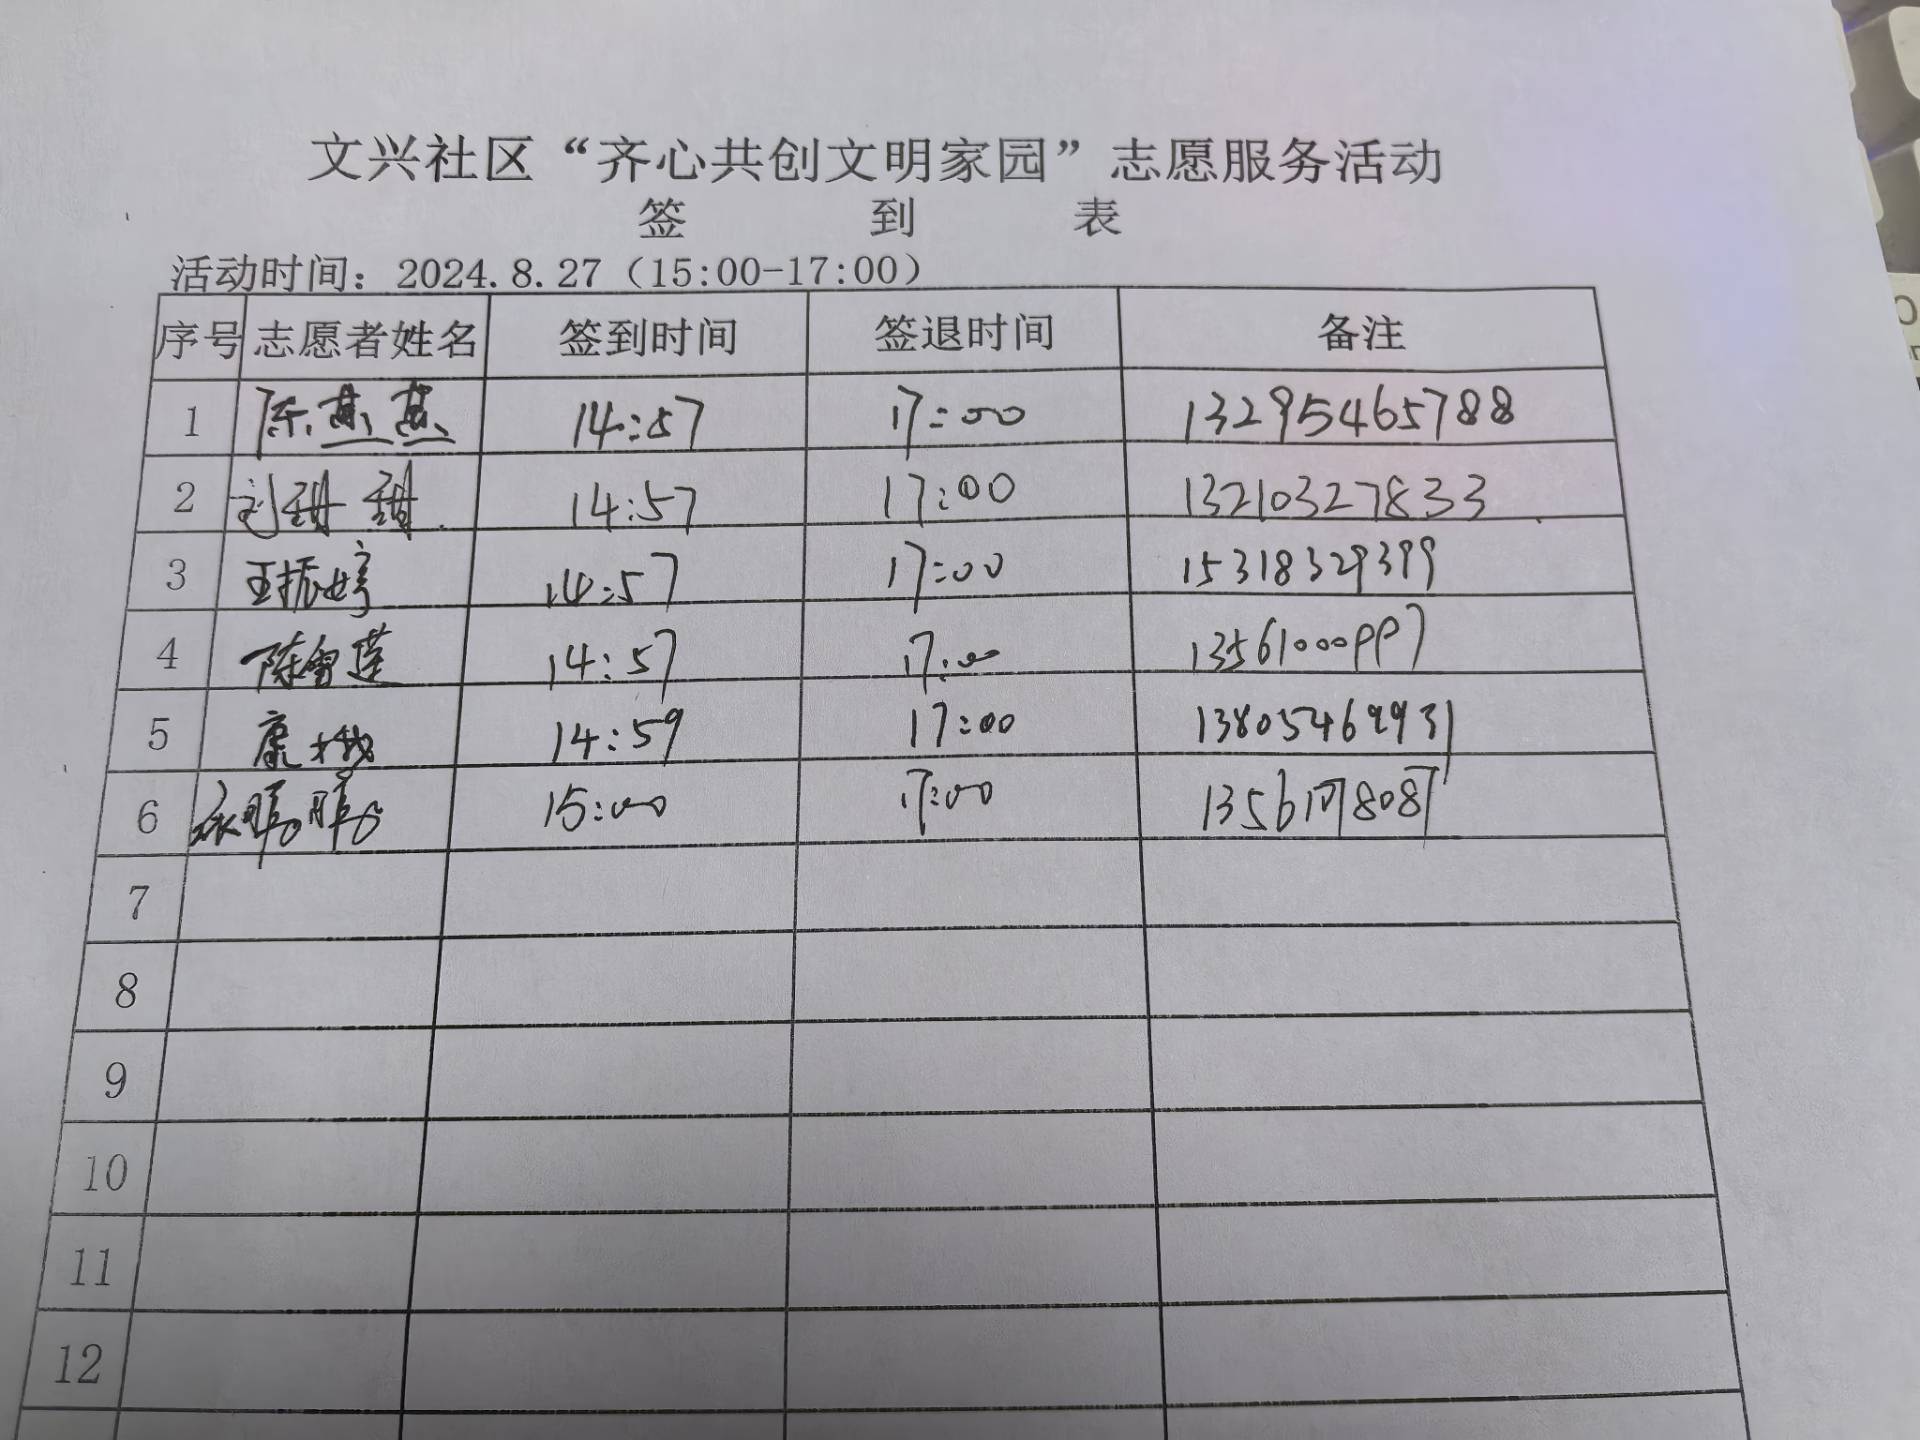 文兴社区“齐心共创文明家园”志愿服务活动
签 到 表
活动时间：2024.8.27（15:00-17:00）
序号 志愿者姓名 签到时间 签退时间 备注
1 陈燕燕 14:57 17:00 13295465788
2 刘甜甜 14:57 17:00 13210327833
3 王振婷 14:57 17:00 15318329399
4 陈雪莲 14:57 17:00 13561000997
5 康 14:59 17:00 13805469931
6 15:00 17:00
7
8
9
10
11
12